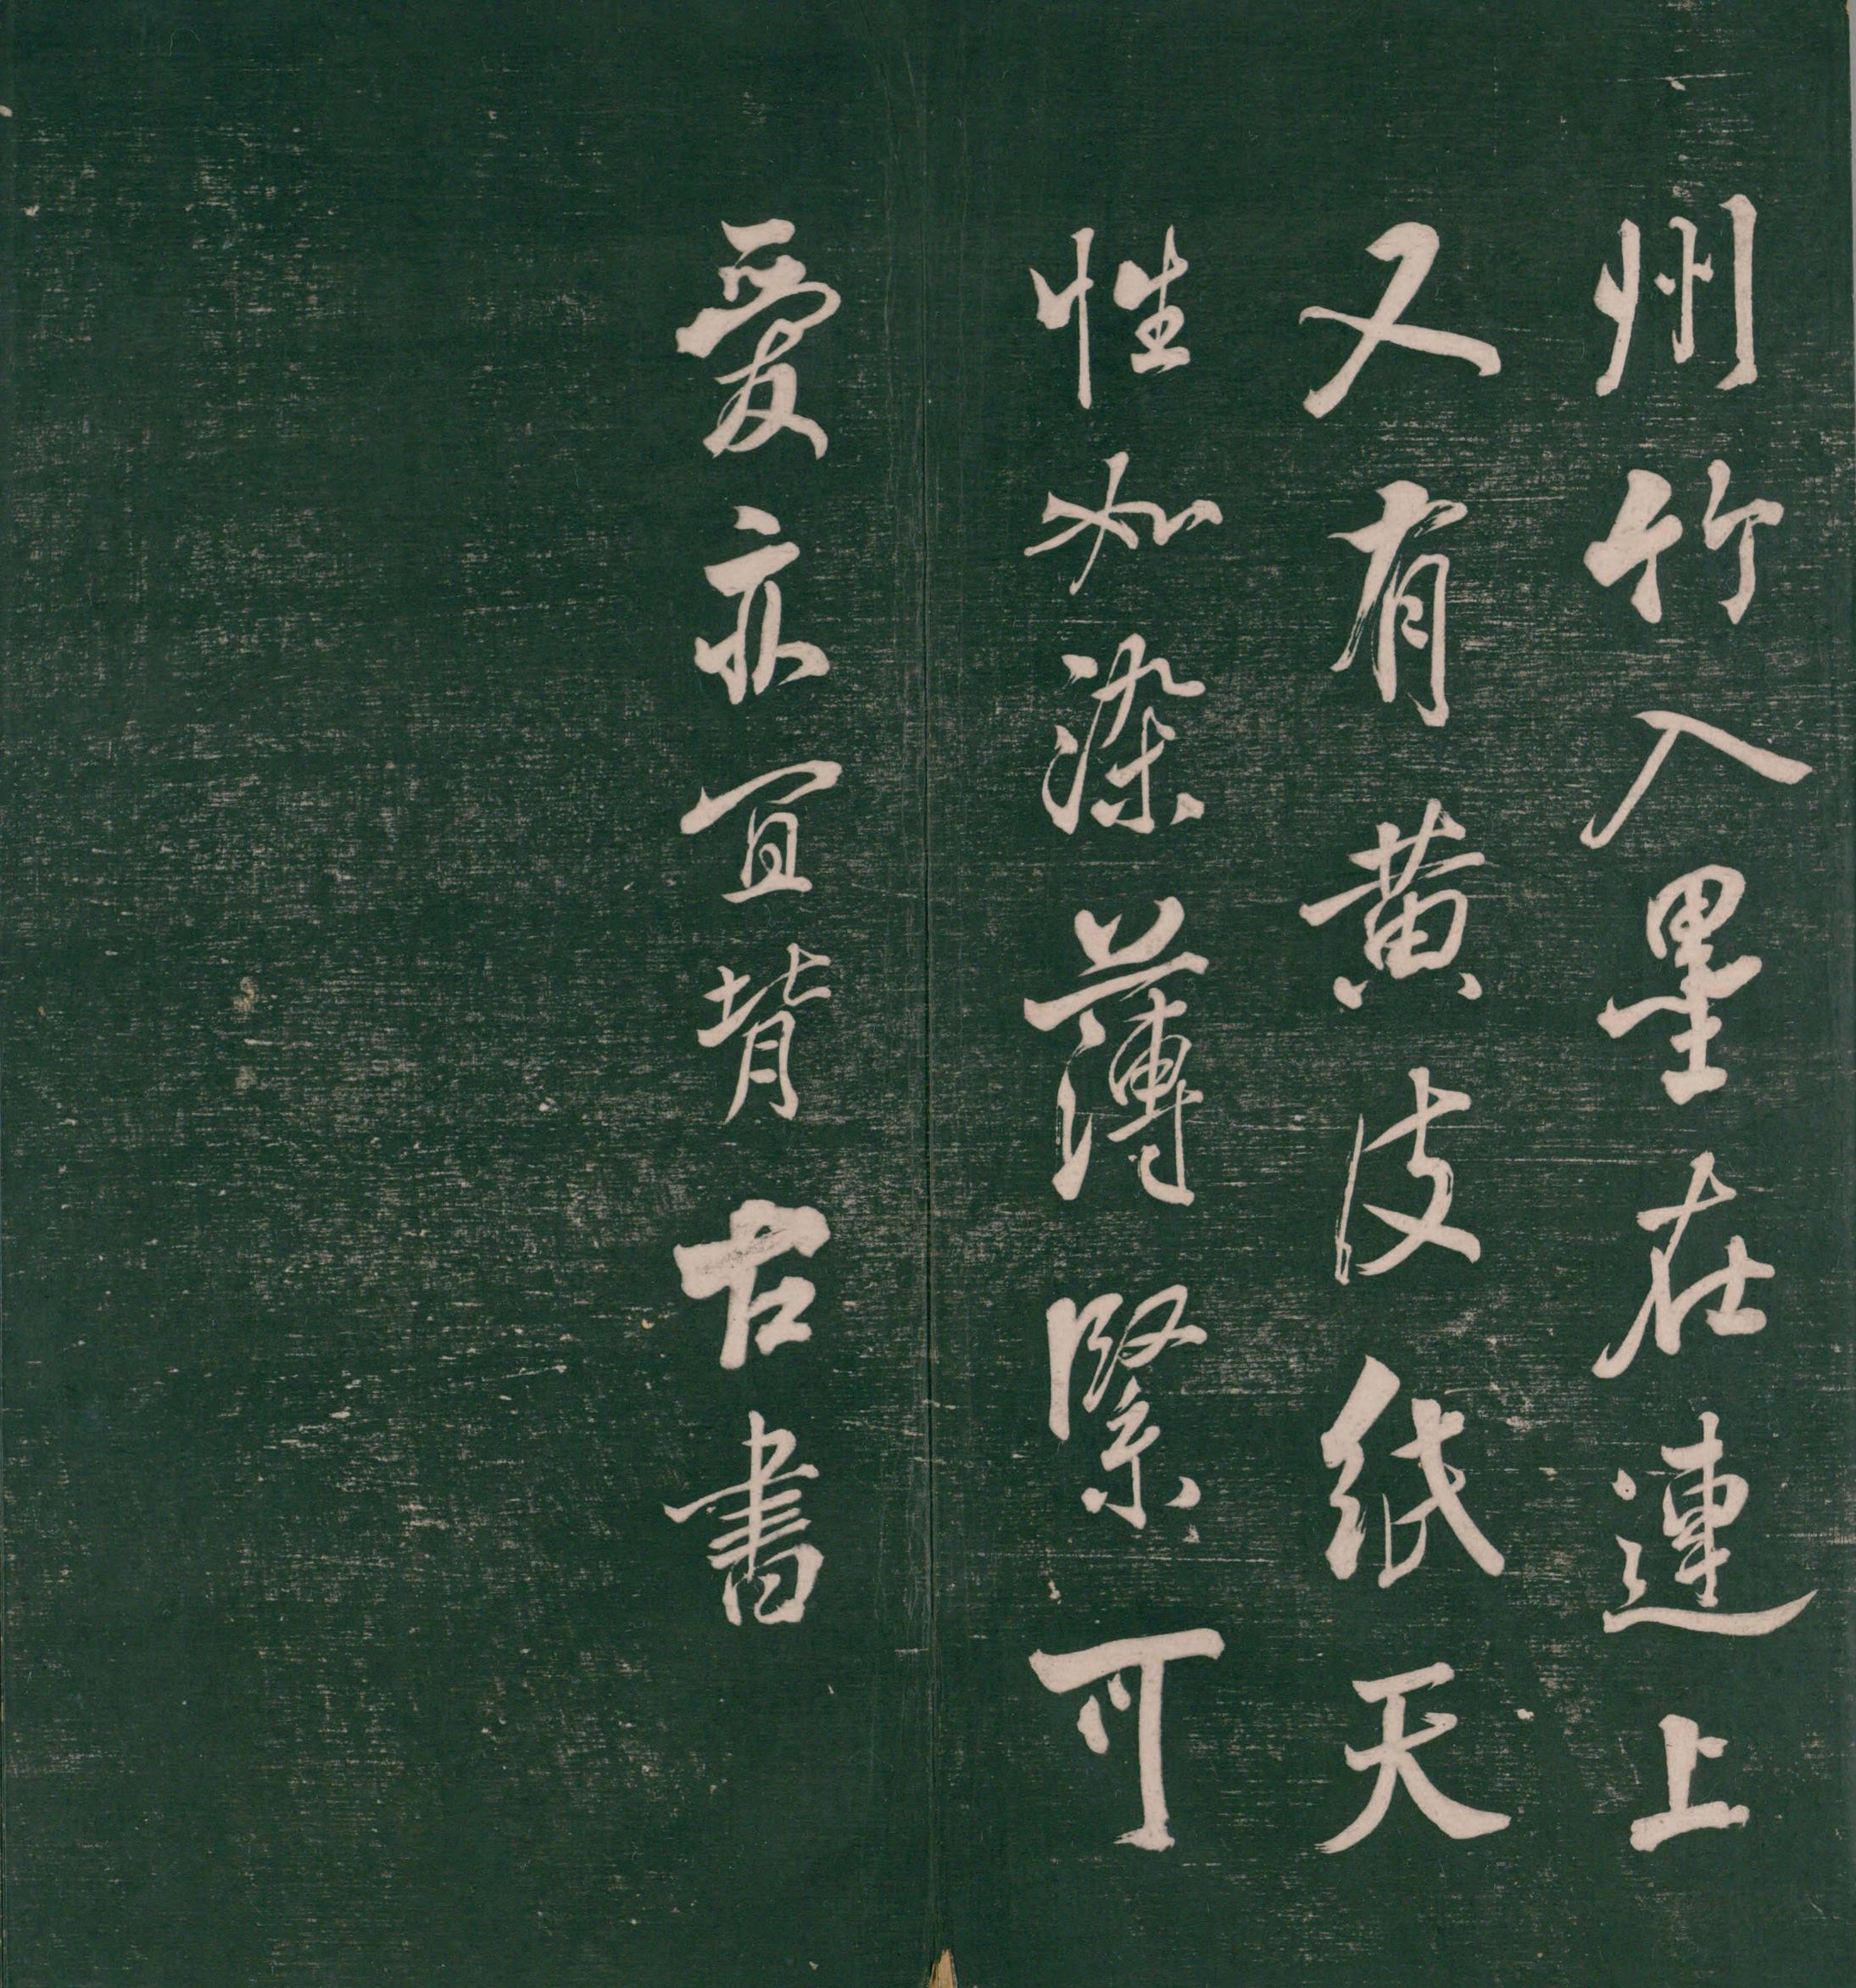 州竹入墨在連上
又有黄皮紙天
性如染薄緊可
愛亦宜背古書